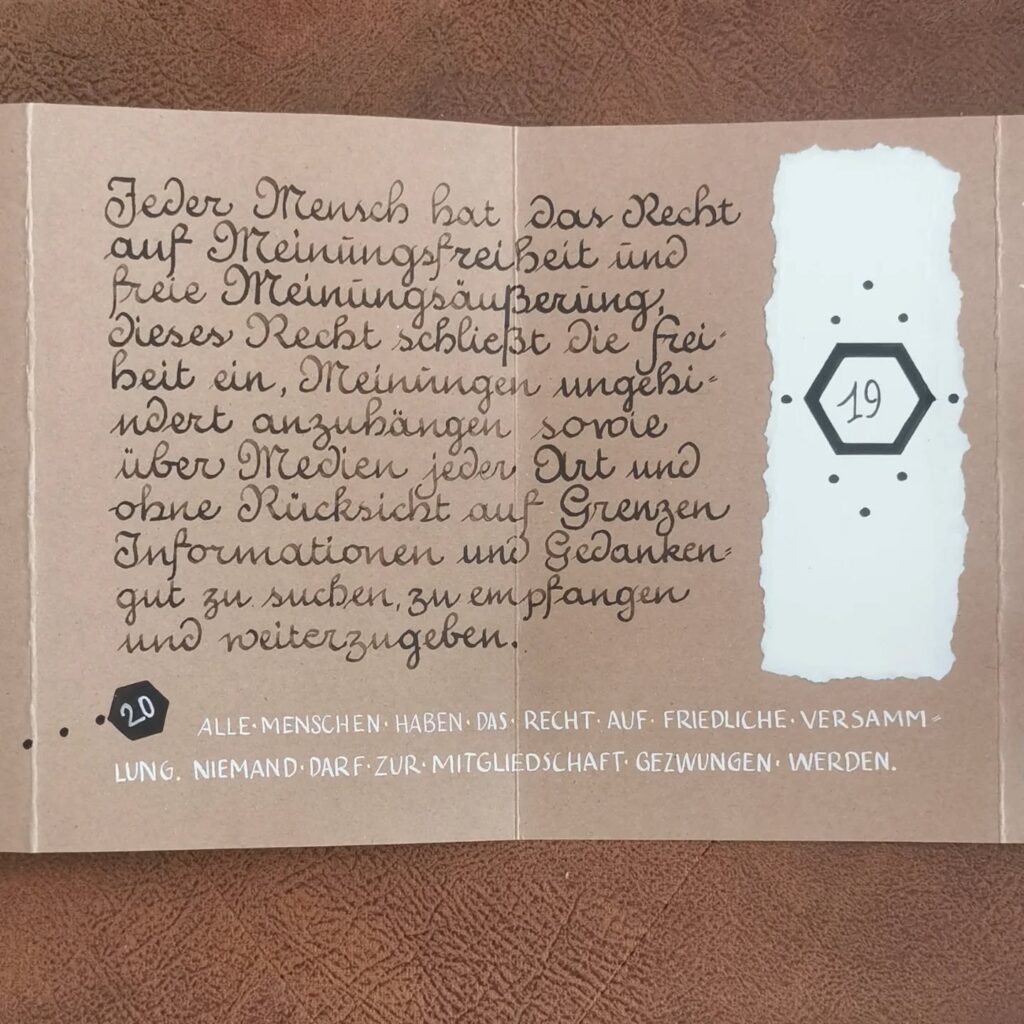 Jeder Mensch hat das Recht
auf Meinungsfreiheit und
freie Meinungsäußerung,
dieses Recht schließt die Frei-
heit ein, Meinungen ungehi=
ndert anzuhängen sowie
über Medien jeder Art und
ohne Rücksicht auf Grenzen
Informationen und Gedanken=
gut zu suchen, zu empfangen
und weiterzugeben.
19
20
ALLE·MENSCHEN·HABEN·DAS·RECHT·AUF·FRIEDLICHE·VERSAMM=
LUNG. NIEMAND·DARF·ZUR·MITGLIEDSCHAFT·GEZWUNGEN·WERDEN.